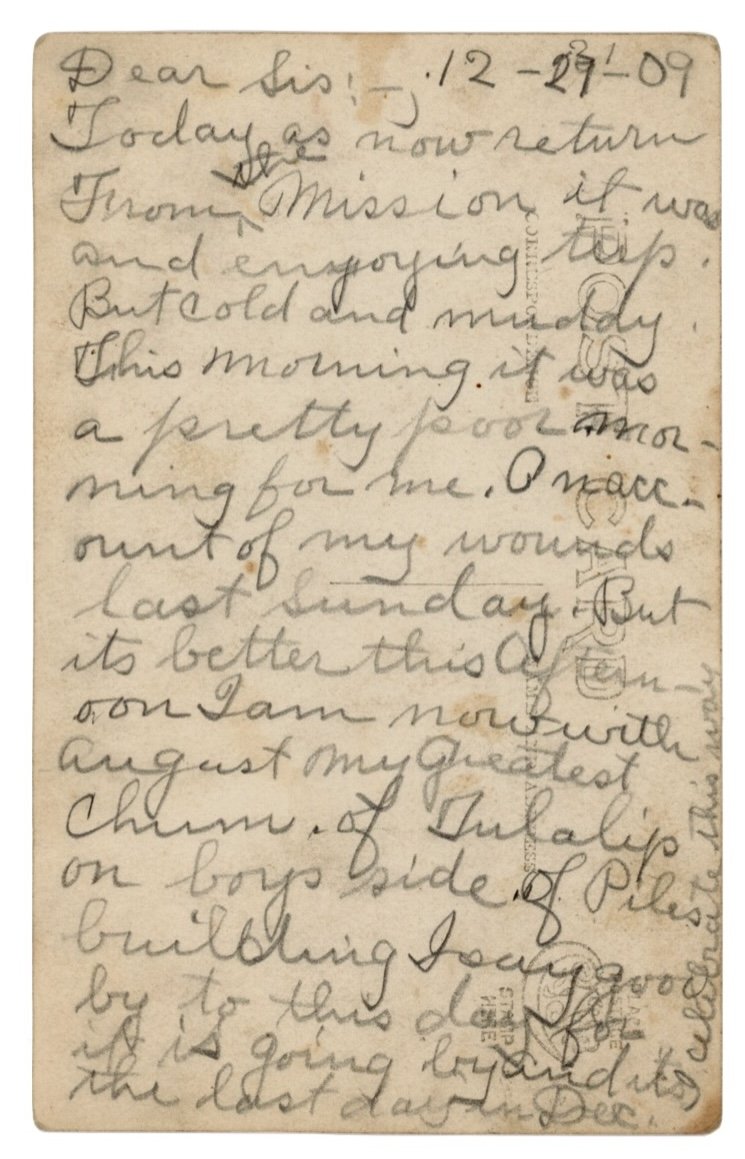 Dear Sis:- 12-31-09
Today as now return
From the Mission it was
and enyoying trip.
But cold and mudday.
This morning it was
a pretty poor mor-
ning for me. On acc-
ount of my wounds
last Sunday. But
its better this Aftern-
oon I am now with
August my Greatest
Chum. of Tulalip
on boys side of Piles
building I say good
by to this day for
it is going by and its
the last day in Dec.
I celebrate this way
POST CARD
CORRESPONDENCE
ADDRESS
PLACE
STAMP
HERE